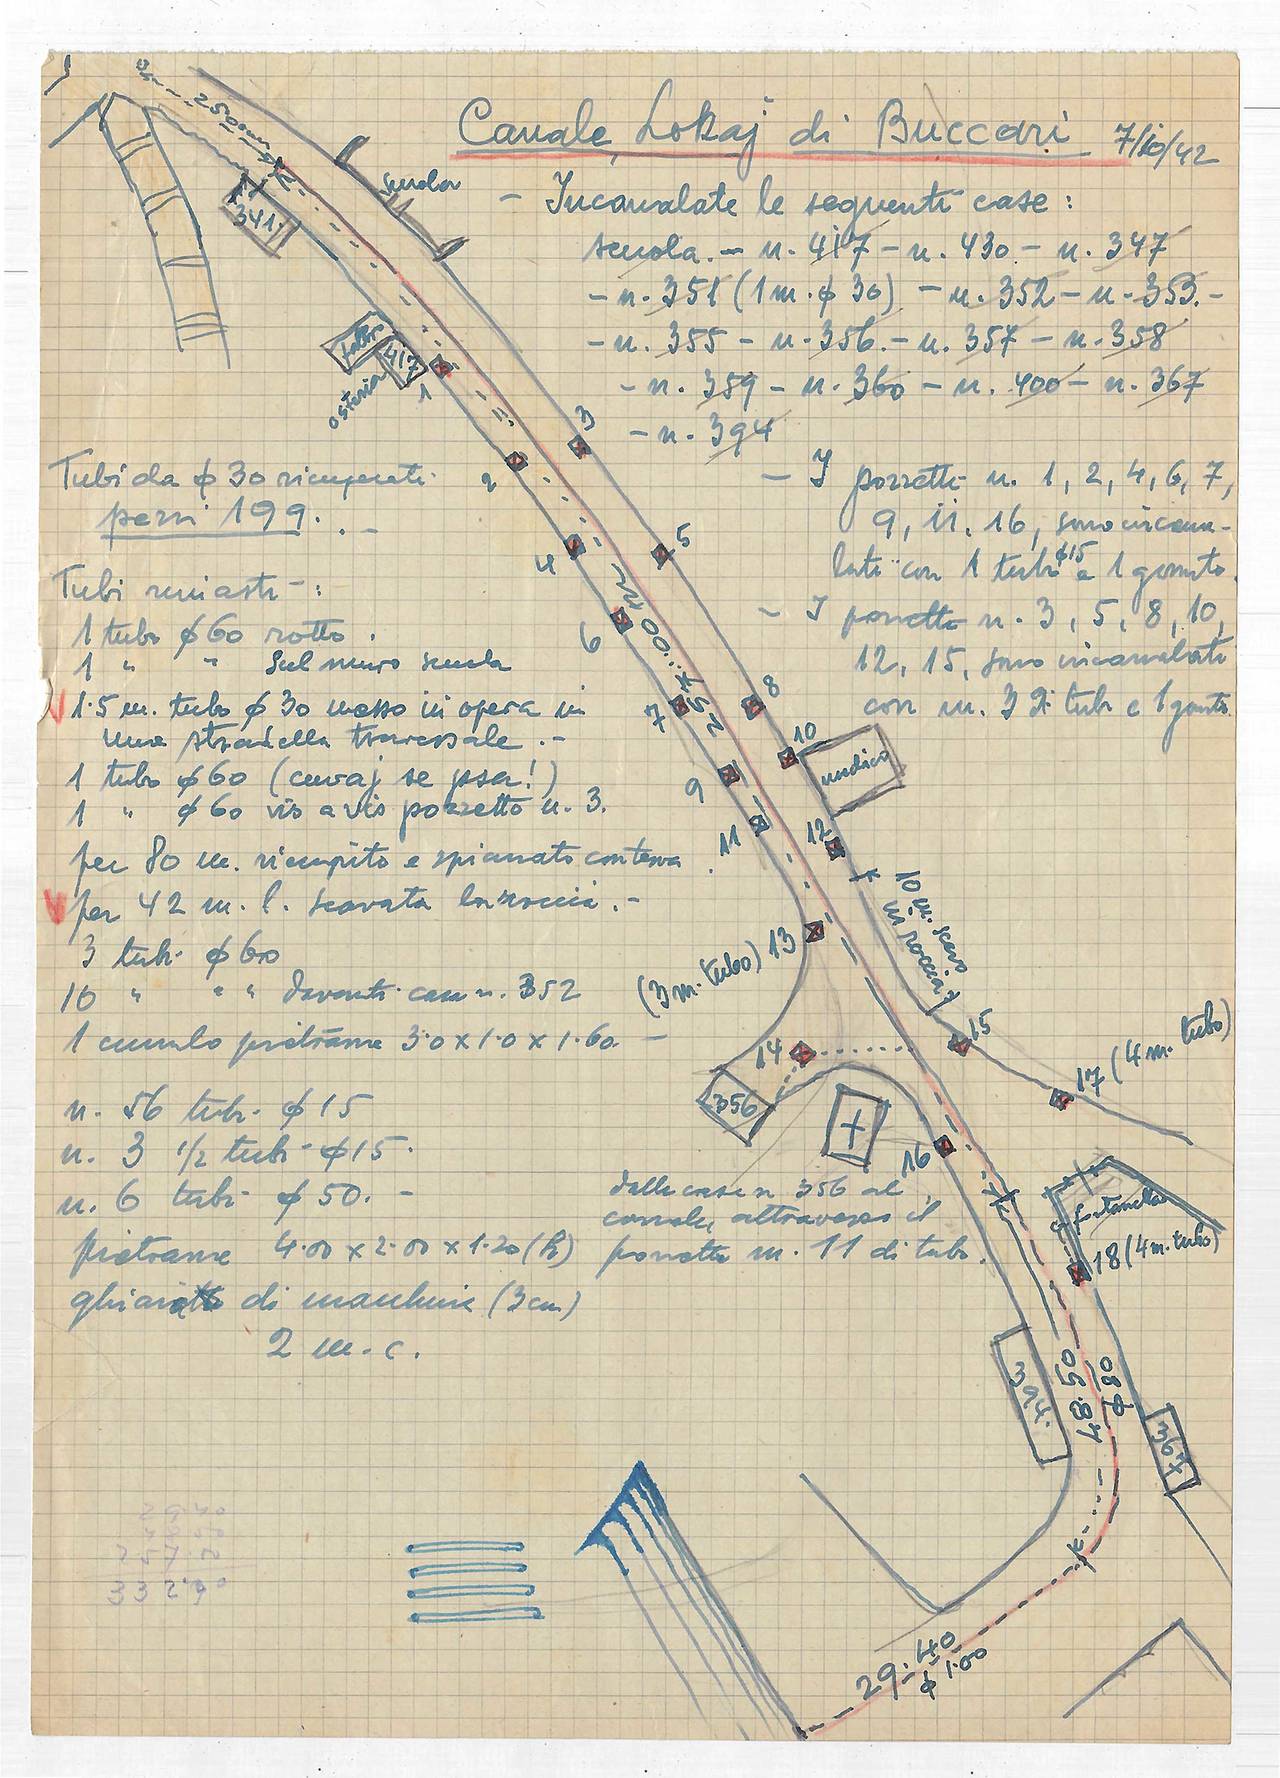 Canale Lokaj di Buccari 7/10/42
- Incanalate le seguenti case:
scuola. - n. 417 - n. 430 - n. 347
- n. 351 (1 m. ϕ 30) - n. 352 - n. 353. -
- n. 355 - n. 356. - n. 357 - n. 358
- n. 359 - n. 360 - n. 400 - n. 367
- n. 394
- I pozzetti n. 1, 2, 4, 6, 7,
9, 11, 16, sono incana-
lati con 1 tubo ϕ15 e 1 gomito.
- I pozzetti n. 3, 5, 8, 10,
12, 15, sono incanalati
con n. 2 tubi e 1 gomito
Tubi da ϕ 30 ricuperati
pezzi 199. -
Tubi rimasti -:
1 tubo ϕ60 rotto.
1 " " sul muro scuola
1.5 m. tubo ϕ 30 messo in opera in
una stradella trasversale. -
1 tubo ϕ60 (cuvaj se psa!)
1 " ϕ60 vis a vis pozzetto n. 3.
per 80 m. riempito e spianato con terra.
per 42 m. l. scavata la roccia. -
3 tubi ϕ60
10 " " " davanti casa n. 352
1 cumulo pietrame 3.0 x 1.0 x 1.60 -
n. 56 tubi ϕ15
n. 3 1/2 tubi ϕ15.
n. 6 tubi ϕ50. -
pietrame 4.00 x 2.00 x 1.20 (h)
ghiaia di macchina (3 cm)
2 m. c.
dalla casa n. 356 al
canale, attraverso il
pozzetto m. 11 di tubo.
250 m
scuola
341.
417
osteria
1
2
3
4
5
6
7
8
9
10
medico
11
12
10 m. scavo
in roccia
13 (3 m. tubo)
14
356
15
16
17 (4 m. tubo)
fontanella
18 (4 m. tubo)
394.
48.50
ϕ 80
367
29.40
ϕ 1.00
29.40
257.00
332.90